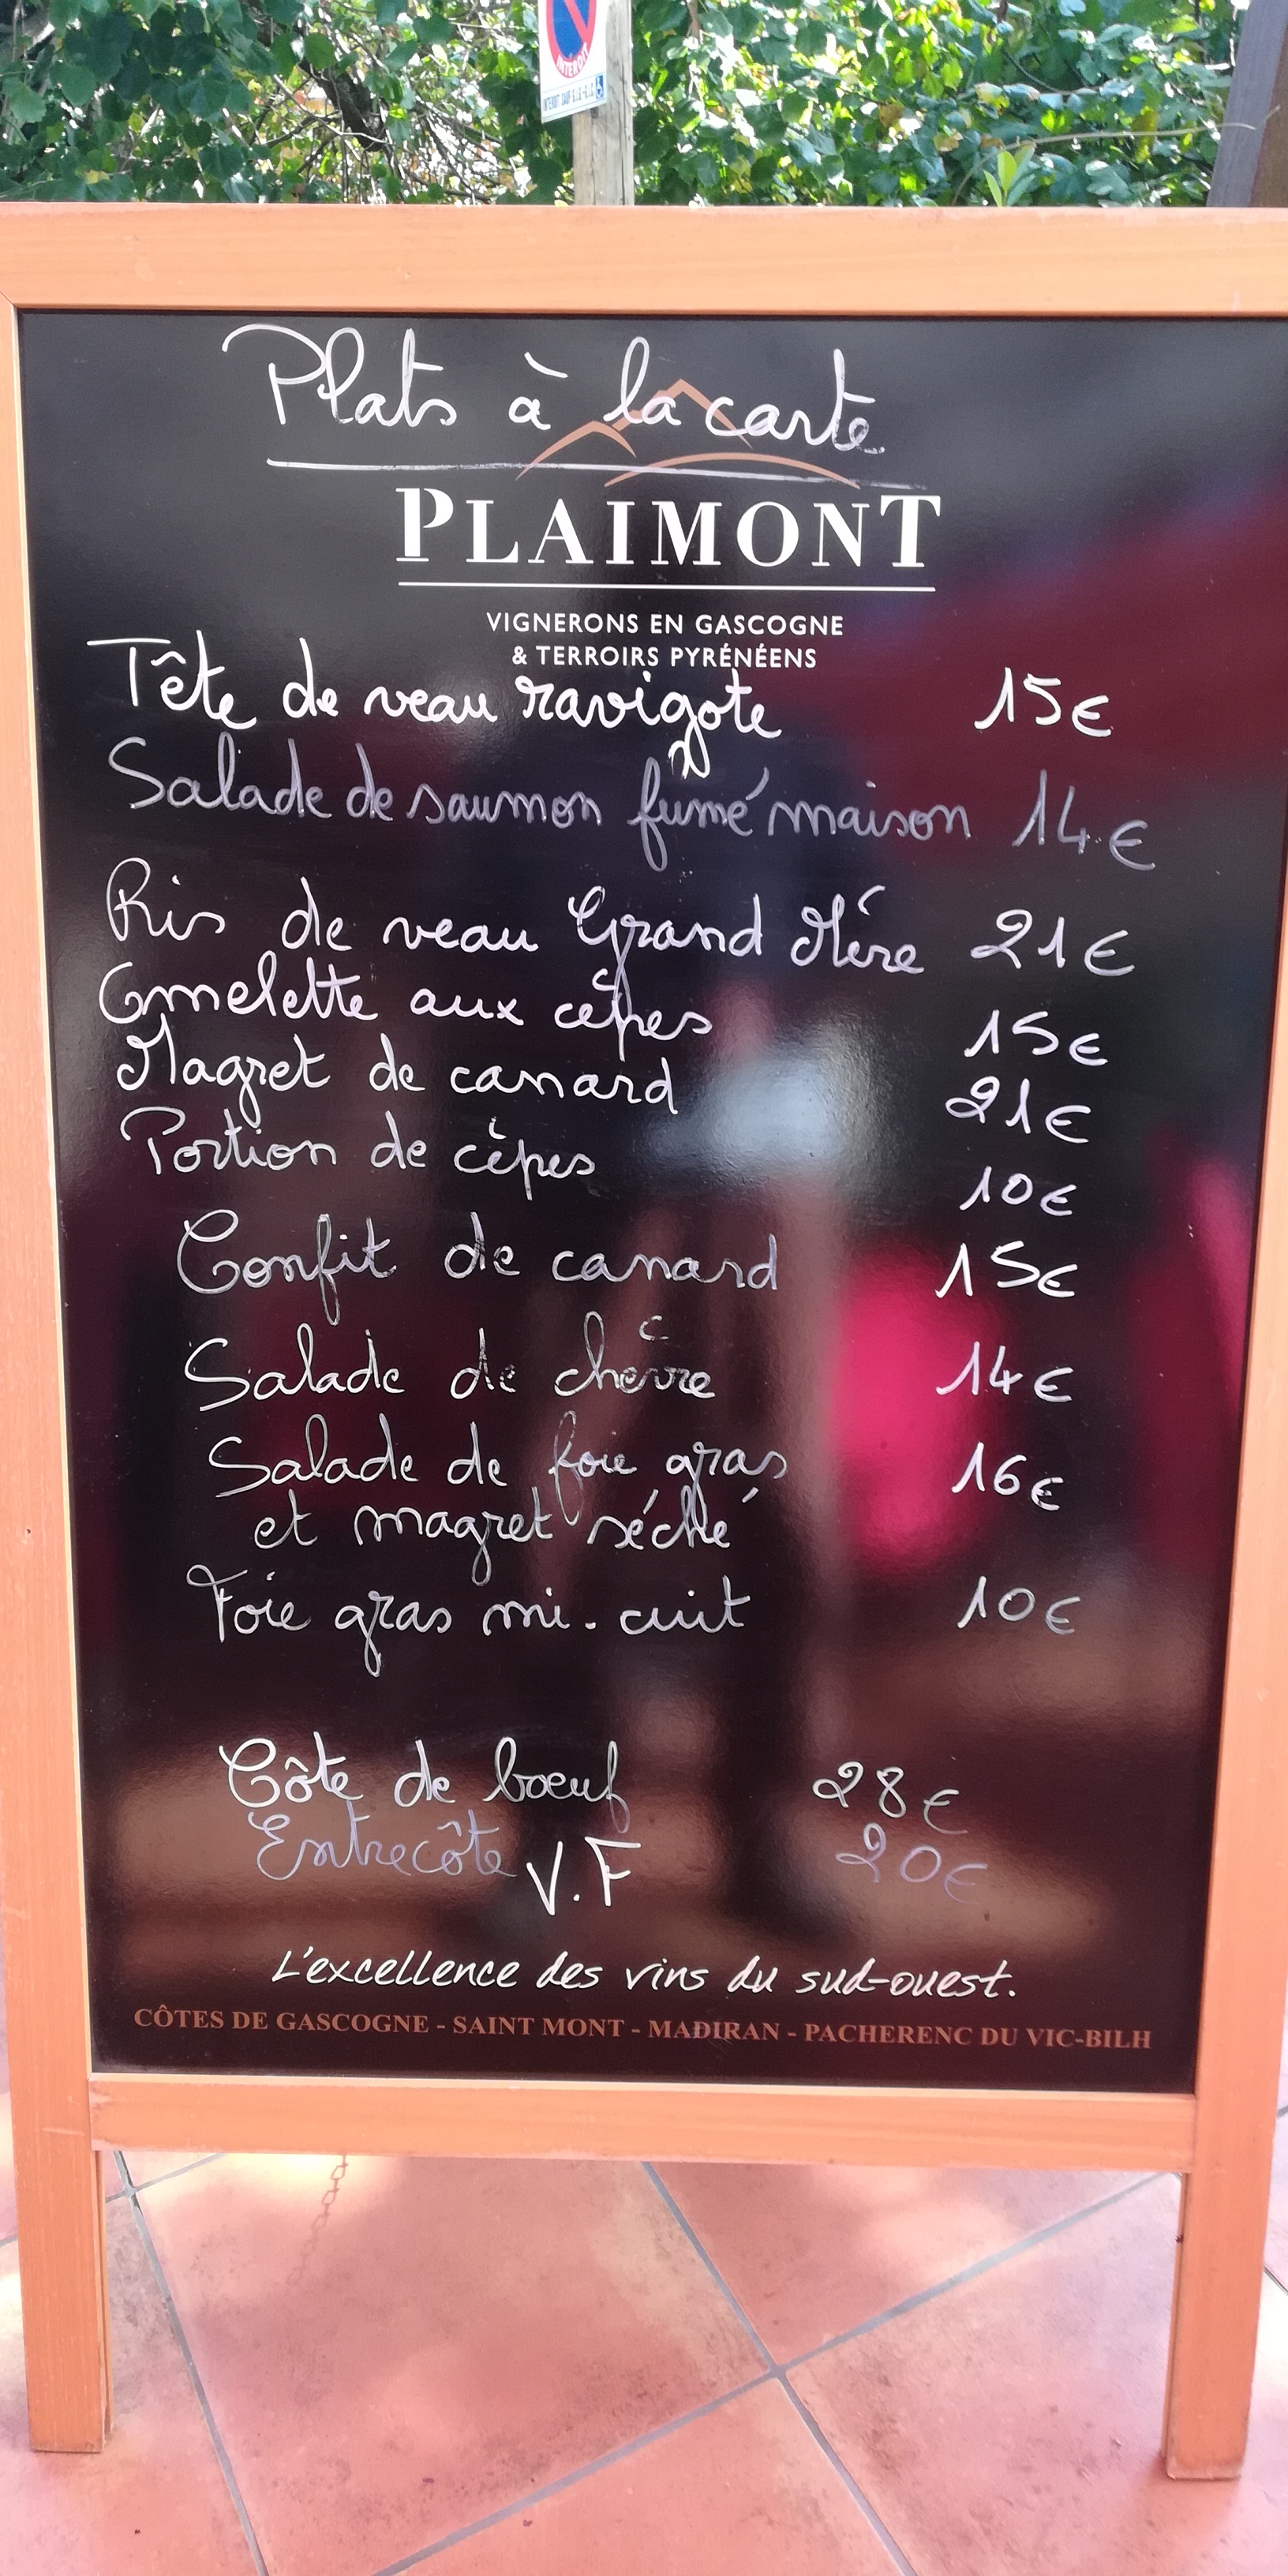 INTERDIT
Plats à la carte
PLAIMONT
VIGNERONS EN GASCOGNE
& TERROIRS PYRÉNÉENS
Tête de veau ravigote 15€
Salade de saumon fumé maison 14€
Ris de veau Grand Mére 21€
Omelette aux cêpes 15€
Magret de canard 21€
Portion de cêpes 10€
Confit de canard 15€
Salade de chèvre 14€
Salade de foie gras 16€
et magret séché
Foie gras mi-cuit 10€
Côte de bœuf 28€
Entrecôte V.F 20€
L'excellence des vins du sud-ouest.
CÔTES DE GASCOGNE - SAINT MONT - MADIRAN - PACHERENC DU VIC-BILH